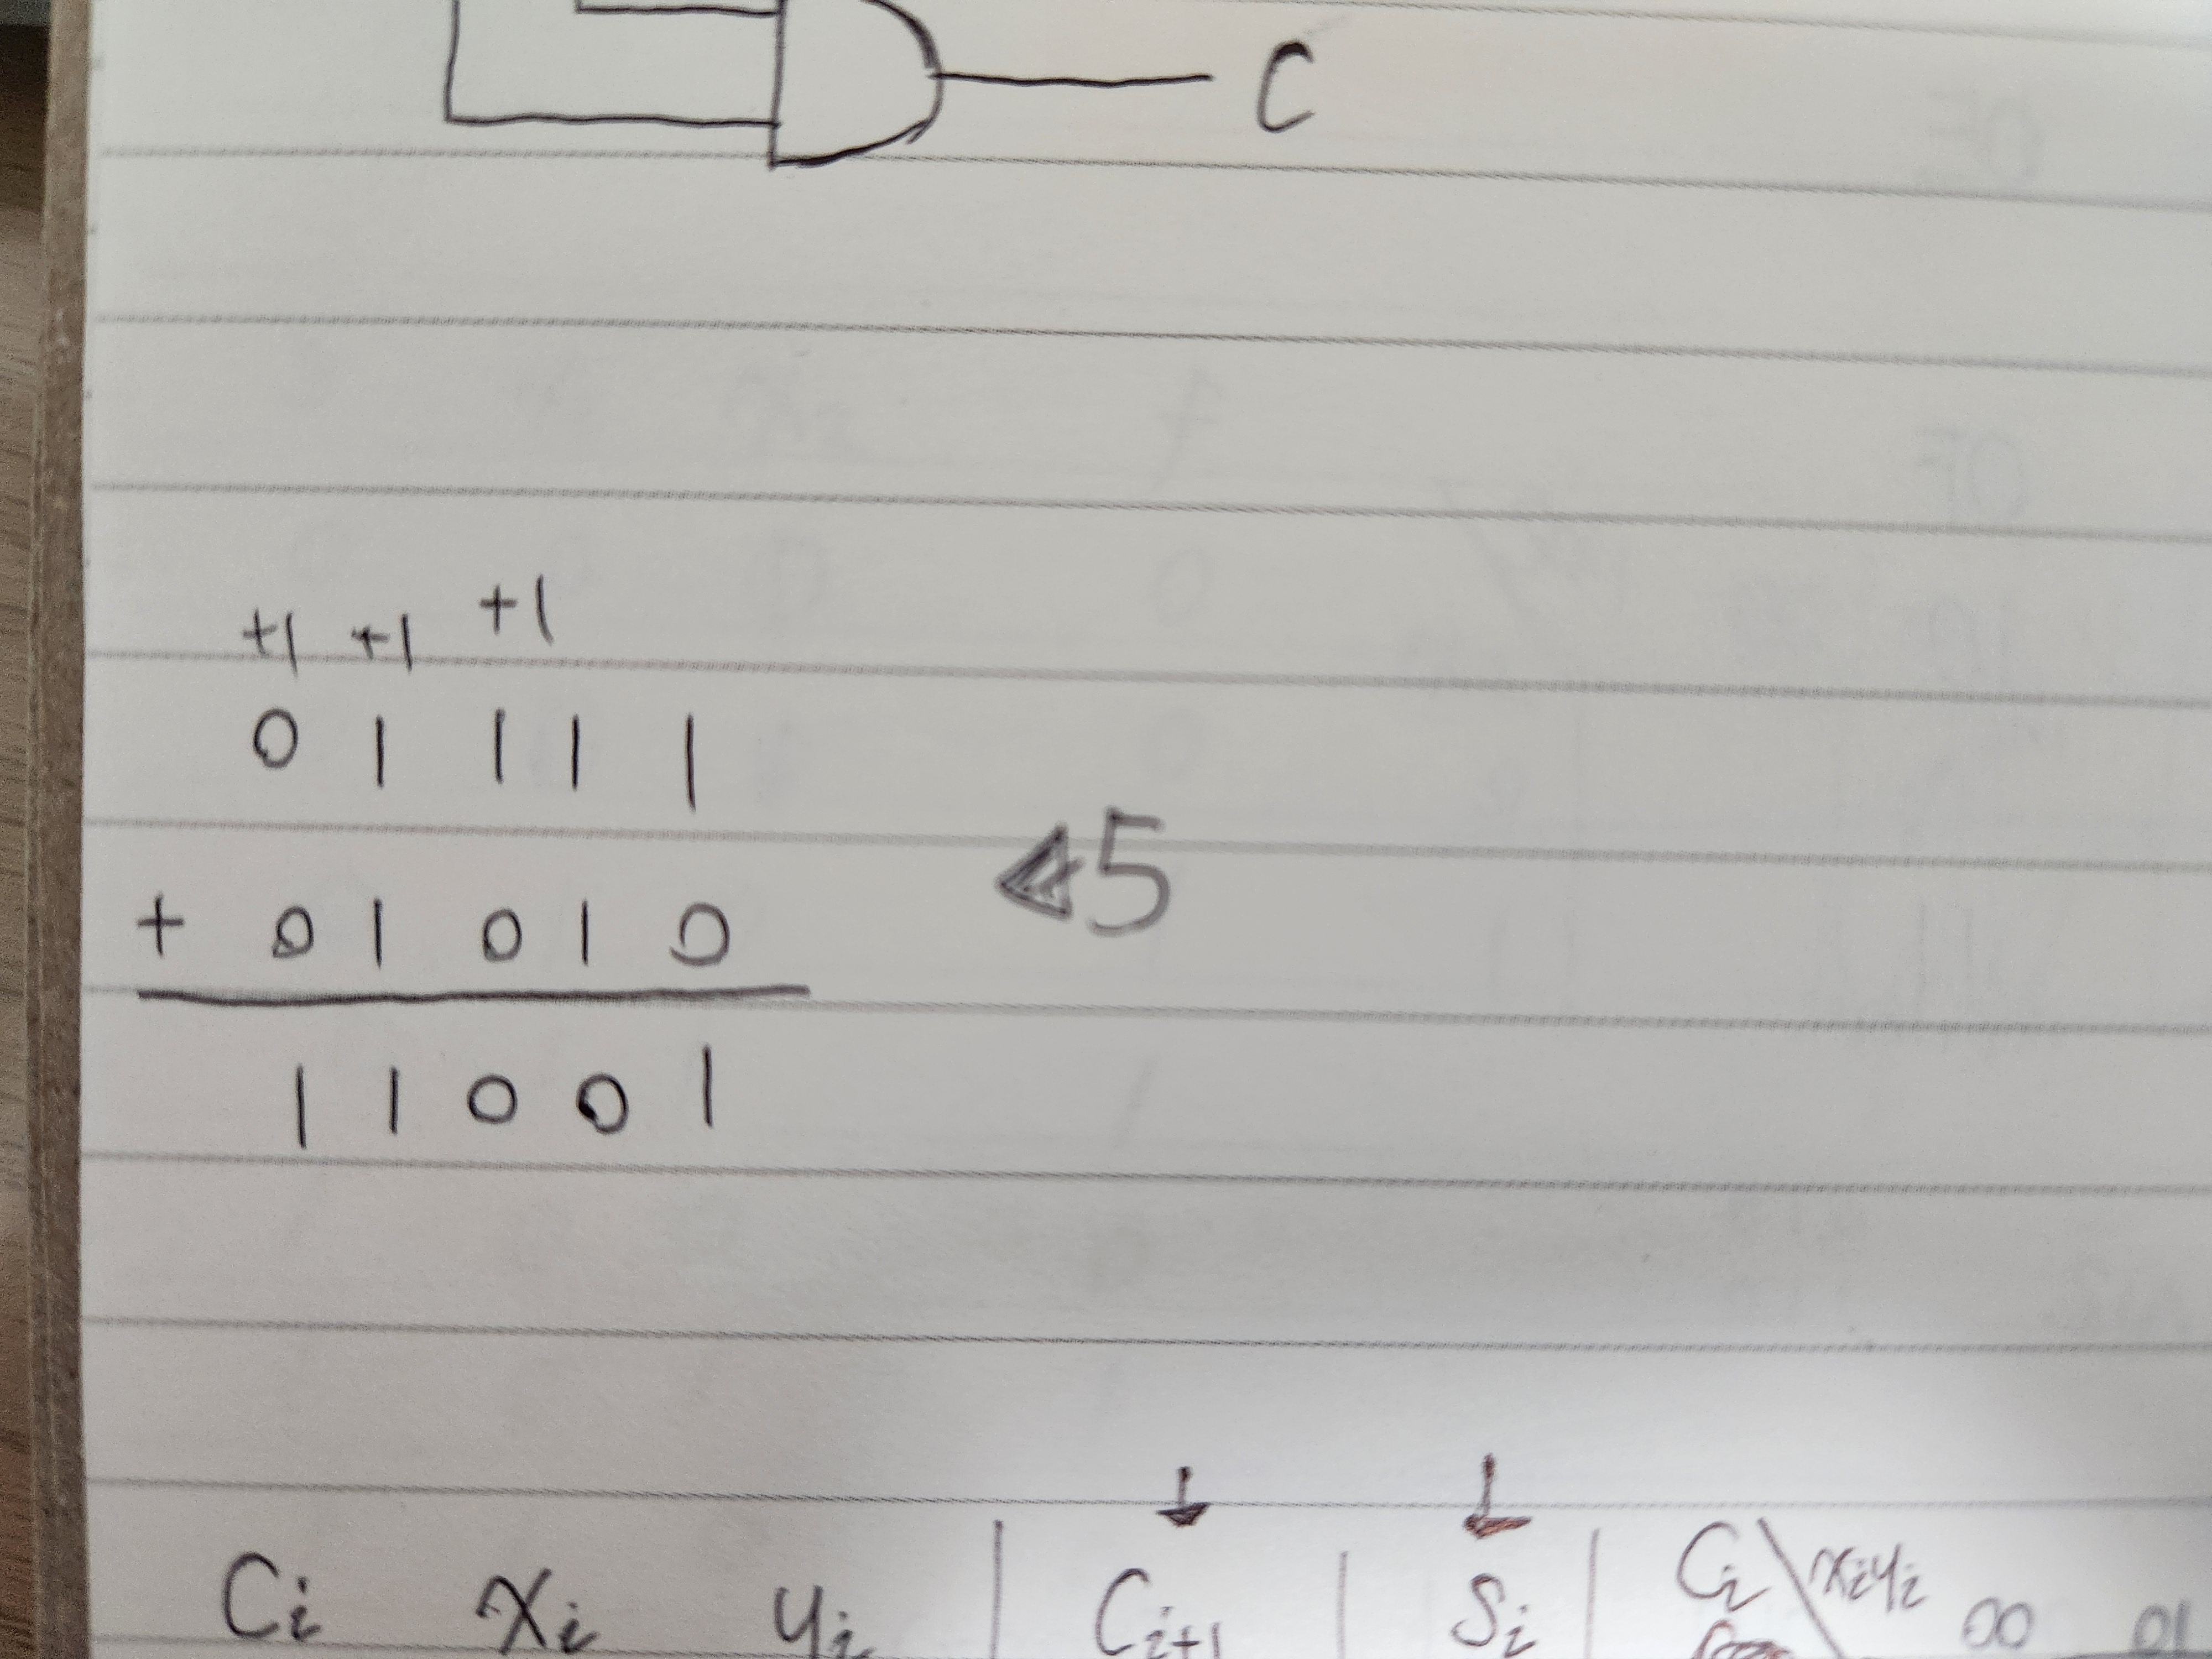 C
+1 +1 +1
0 1 1 1 1
+ 0 1 0 1 0
5
1 1 0 0 1
Ci xi yi Ci+1 Si Ci xiyi 00 01